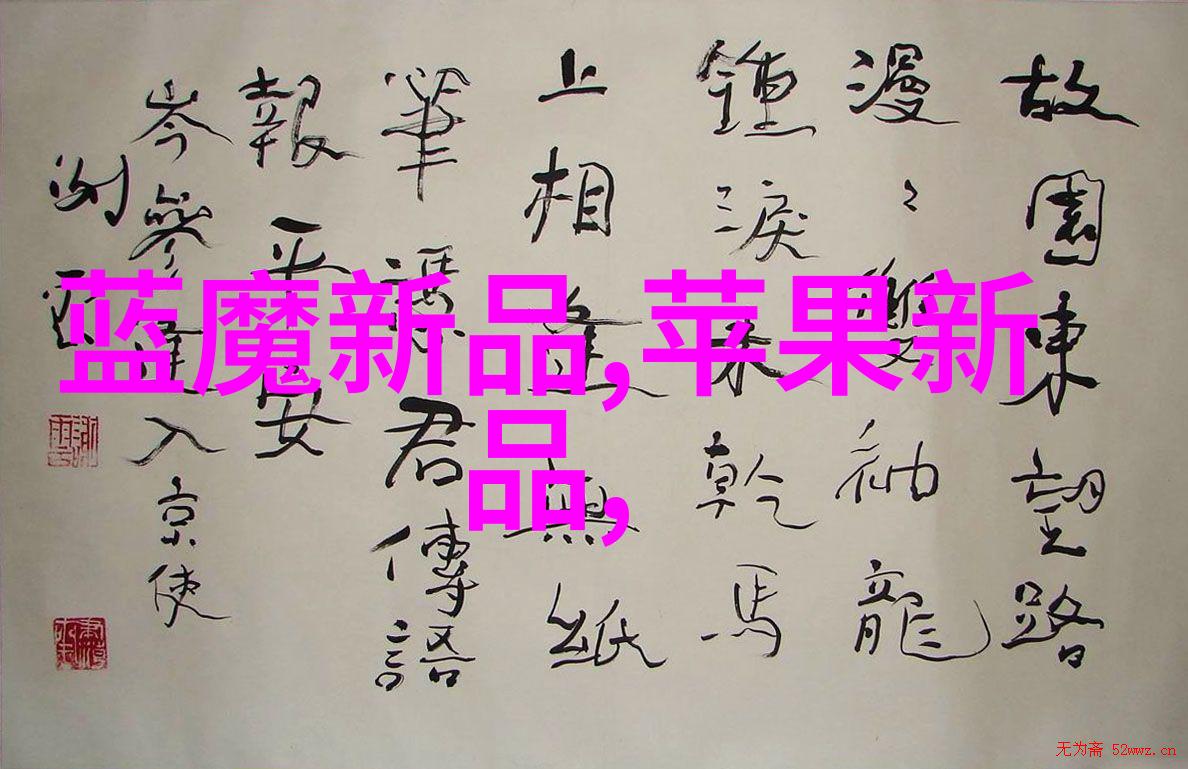 故園東望路
漫〻雙袖龍
鍾淚未乾馬
上相逢無紙
筆憑君傳語
報平安
岑參逢入京使
蓝魔新品,苹果新
品,
无为斋 52wwz.cn